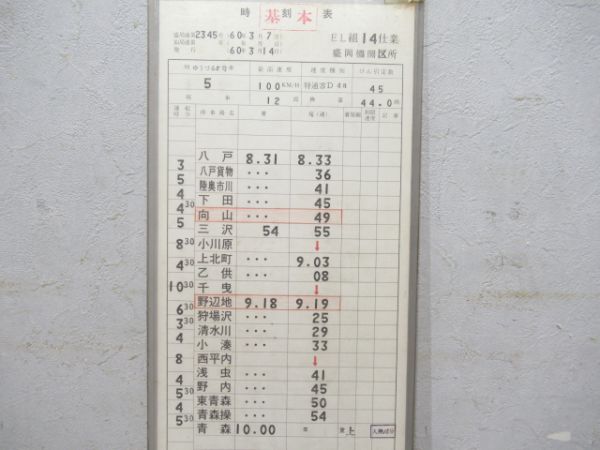 時 基 刻 本 表
2345 60年3月7 EL組14仕業
60年3月14 盛岡機関区所
最高速度 速度種別 けん引定数
5 100KM/H 特通客D4 45
12 換算 44.0
八戸 8.31 8.33
3
八戸貨物 ・・・ 36
5
陸奥市川 ・・・ 41
4
下田 ・・・ 45
4 30
向山 ・・・ 49
5
三沢 54 55
小川原 ↓
8 30
上北町 ・・・ 9.03
4 30
乙供 ・・・ 08
千曳 ↓
10 30
野辺地 9.18 9.19
6 30
狩場沢 ・・・ 25
3 30
清水川 ・・・ 29
4
小湊 ・・・ 33
西平内 ↓
8
浅虫 ・・・ 41
4
野内 ・・・ 45
5 30
東青森 ・・・ 50
4
青森操 ・・・ 54
5 30
青森 10.00 着 上